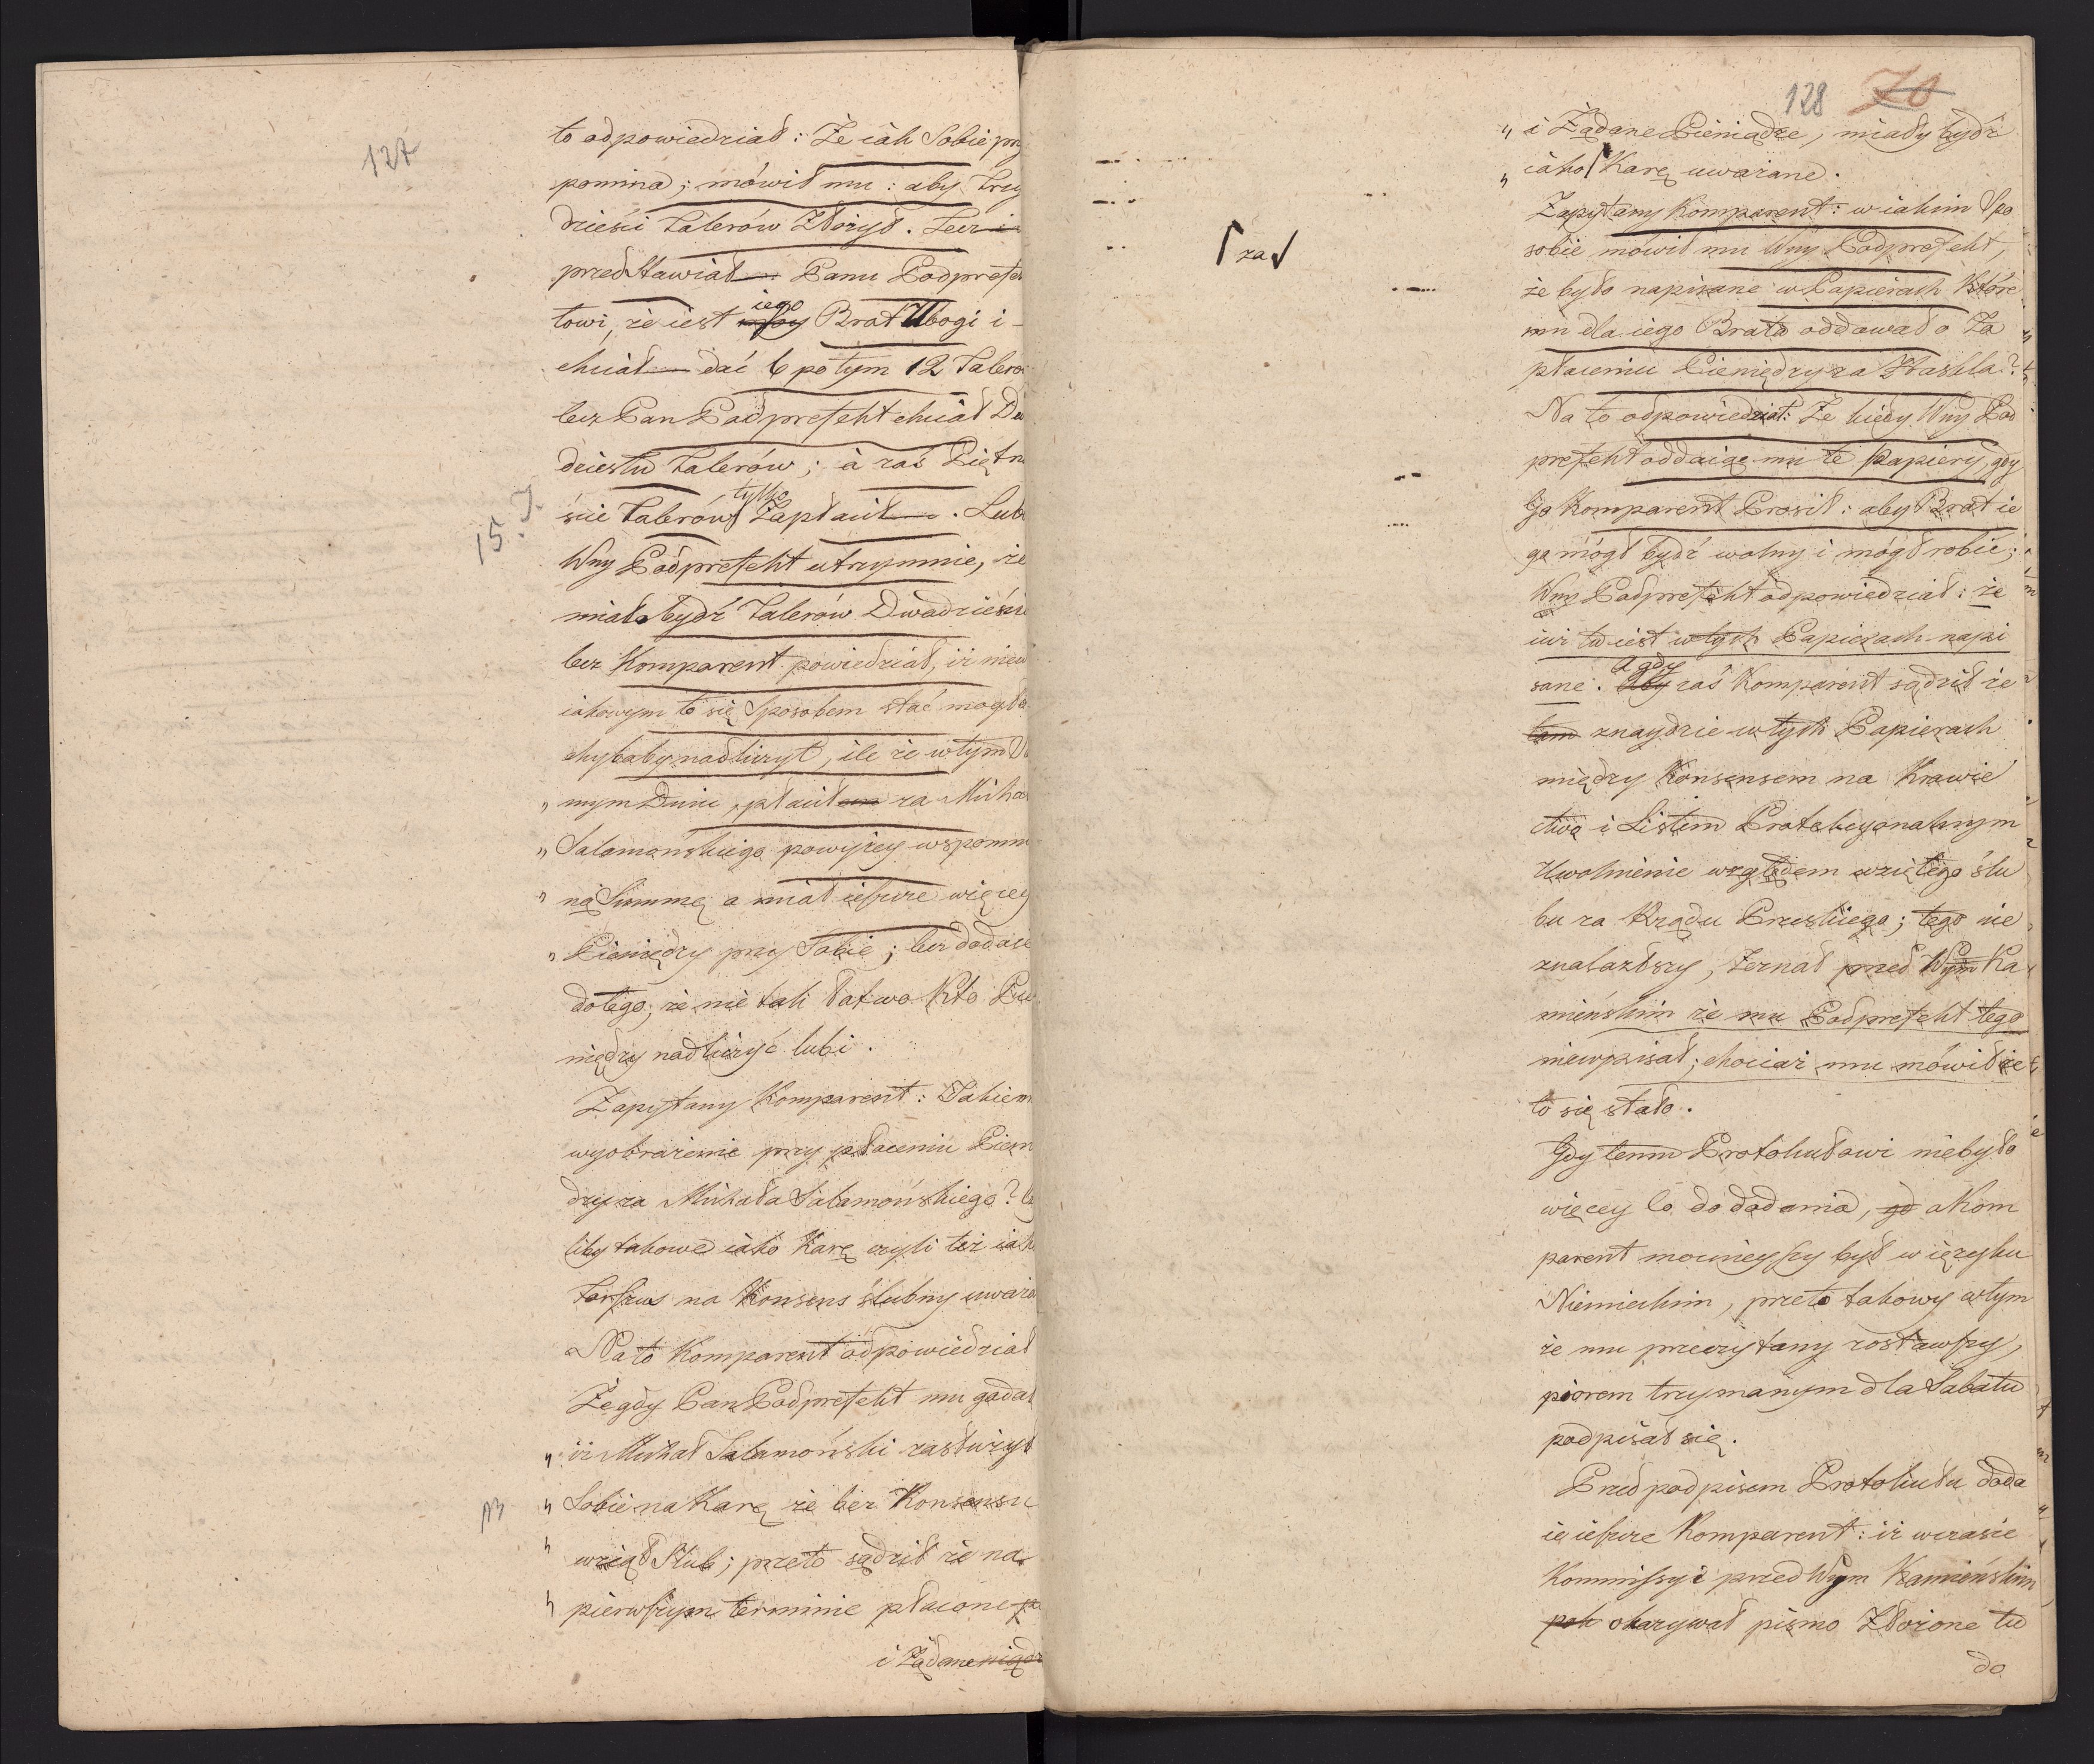 127
to odpowiedział: Że iak Sobie prz
pomina; mówił mu: aby Trzy
dzieści Talerów Złożył. Lecz i
przedstawiał Panu Podprefek
towi, że iest iego Brat Ubogi i
chciał dać 6 potym 12 Talero
lecz Pan Podprefekt chciał Dw
dziestu Talerów; à zaś Piętn
ście Talerów tylko Zapłacił. Lubo
15. J.
Wny Podprefekt utrzymuie, że
miało bydź Talerów Dwadzieście
lecz Komparent powiedział, iż niew
iakowym to się Sposobem stać mogło
chybaby nadliczył, ile że w tym S
„ mym Dniu, płacił za Micha
„ Salamońskiego powyżey wspomn
„ ną Summę a miał ieszcze więcey
„ Pieniędzy przy Sobie; lecz dodaie
do tego, że nie tak łatwo Kto Pie
niędzy nadliczyć lubi.
Zapytany Komparent: W Jakiem
wyobrażenie przy płaceniu Pien
dzy za Michała Salamońskiego? C
liby takowe iako Karę czyli też iak
Tarszus na Konsens ślubny uważa
Na to Komparent odpowiedział
Że gdy Pan Podprefekt mu gadał
„ iż Michał Salamoński zasłużył
„ Sobie na Karę że bez Konsensu
„ wziął Ślub; przeto sądził że na
„ pierwszym terminie płacone
i Żądane niądz
128 70
„ i Żądane Pieniądze, miały bydź
„ iako Karę uważane.
za
Zapytany Komparent: w iakim Spo
sobie mówił mu Wny Podprefekt,
że było napisane w Papierach Które
mu dla iego Brata oddawał o Za
płaceniu Pieniędzy za Haskla?
Na to odpowiedział: Że kiedy Wny Pod
prefekt oddaiąc mu te Papiery, gdy
Go Komparent Prosił: aby Brat ie
go mógł bydź wolny i mógł robić;
Wny Podprefekt odpowiedział: że
iuż to iest w tych Papierach napi
sane. A gdy zaś Komparent sądził że
tam znaydzie w tych Papierach
między Konsensem na Krawie
ctwo i Listem Protekcyonalnym
Uwolnienie względem wziętego ślu
bu za Rządu Pruskiego; tego nie
znalazłszy, Zeznał przed Wym Ka
mieńskim że mu Podprefekt tego
niewpisał; chociaż mu mówił że
to się stało.
Gdy temu Protokułowi niebyło
więcey co do dodania, gd a Kom
parent mocnieyszy był w ięzyku
Niemieckim, przeto takowy w tym
że mu przeczytany zostawszy,
piorem trzymanym dla Sabatu
podpisał się.
Przed podpisem Protokułu doda
ie ieszcze Komparent: iż w czasie
Kommissyi przed Wym Kamieńskim
pok okazywał pismo Złożone tu
do